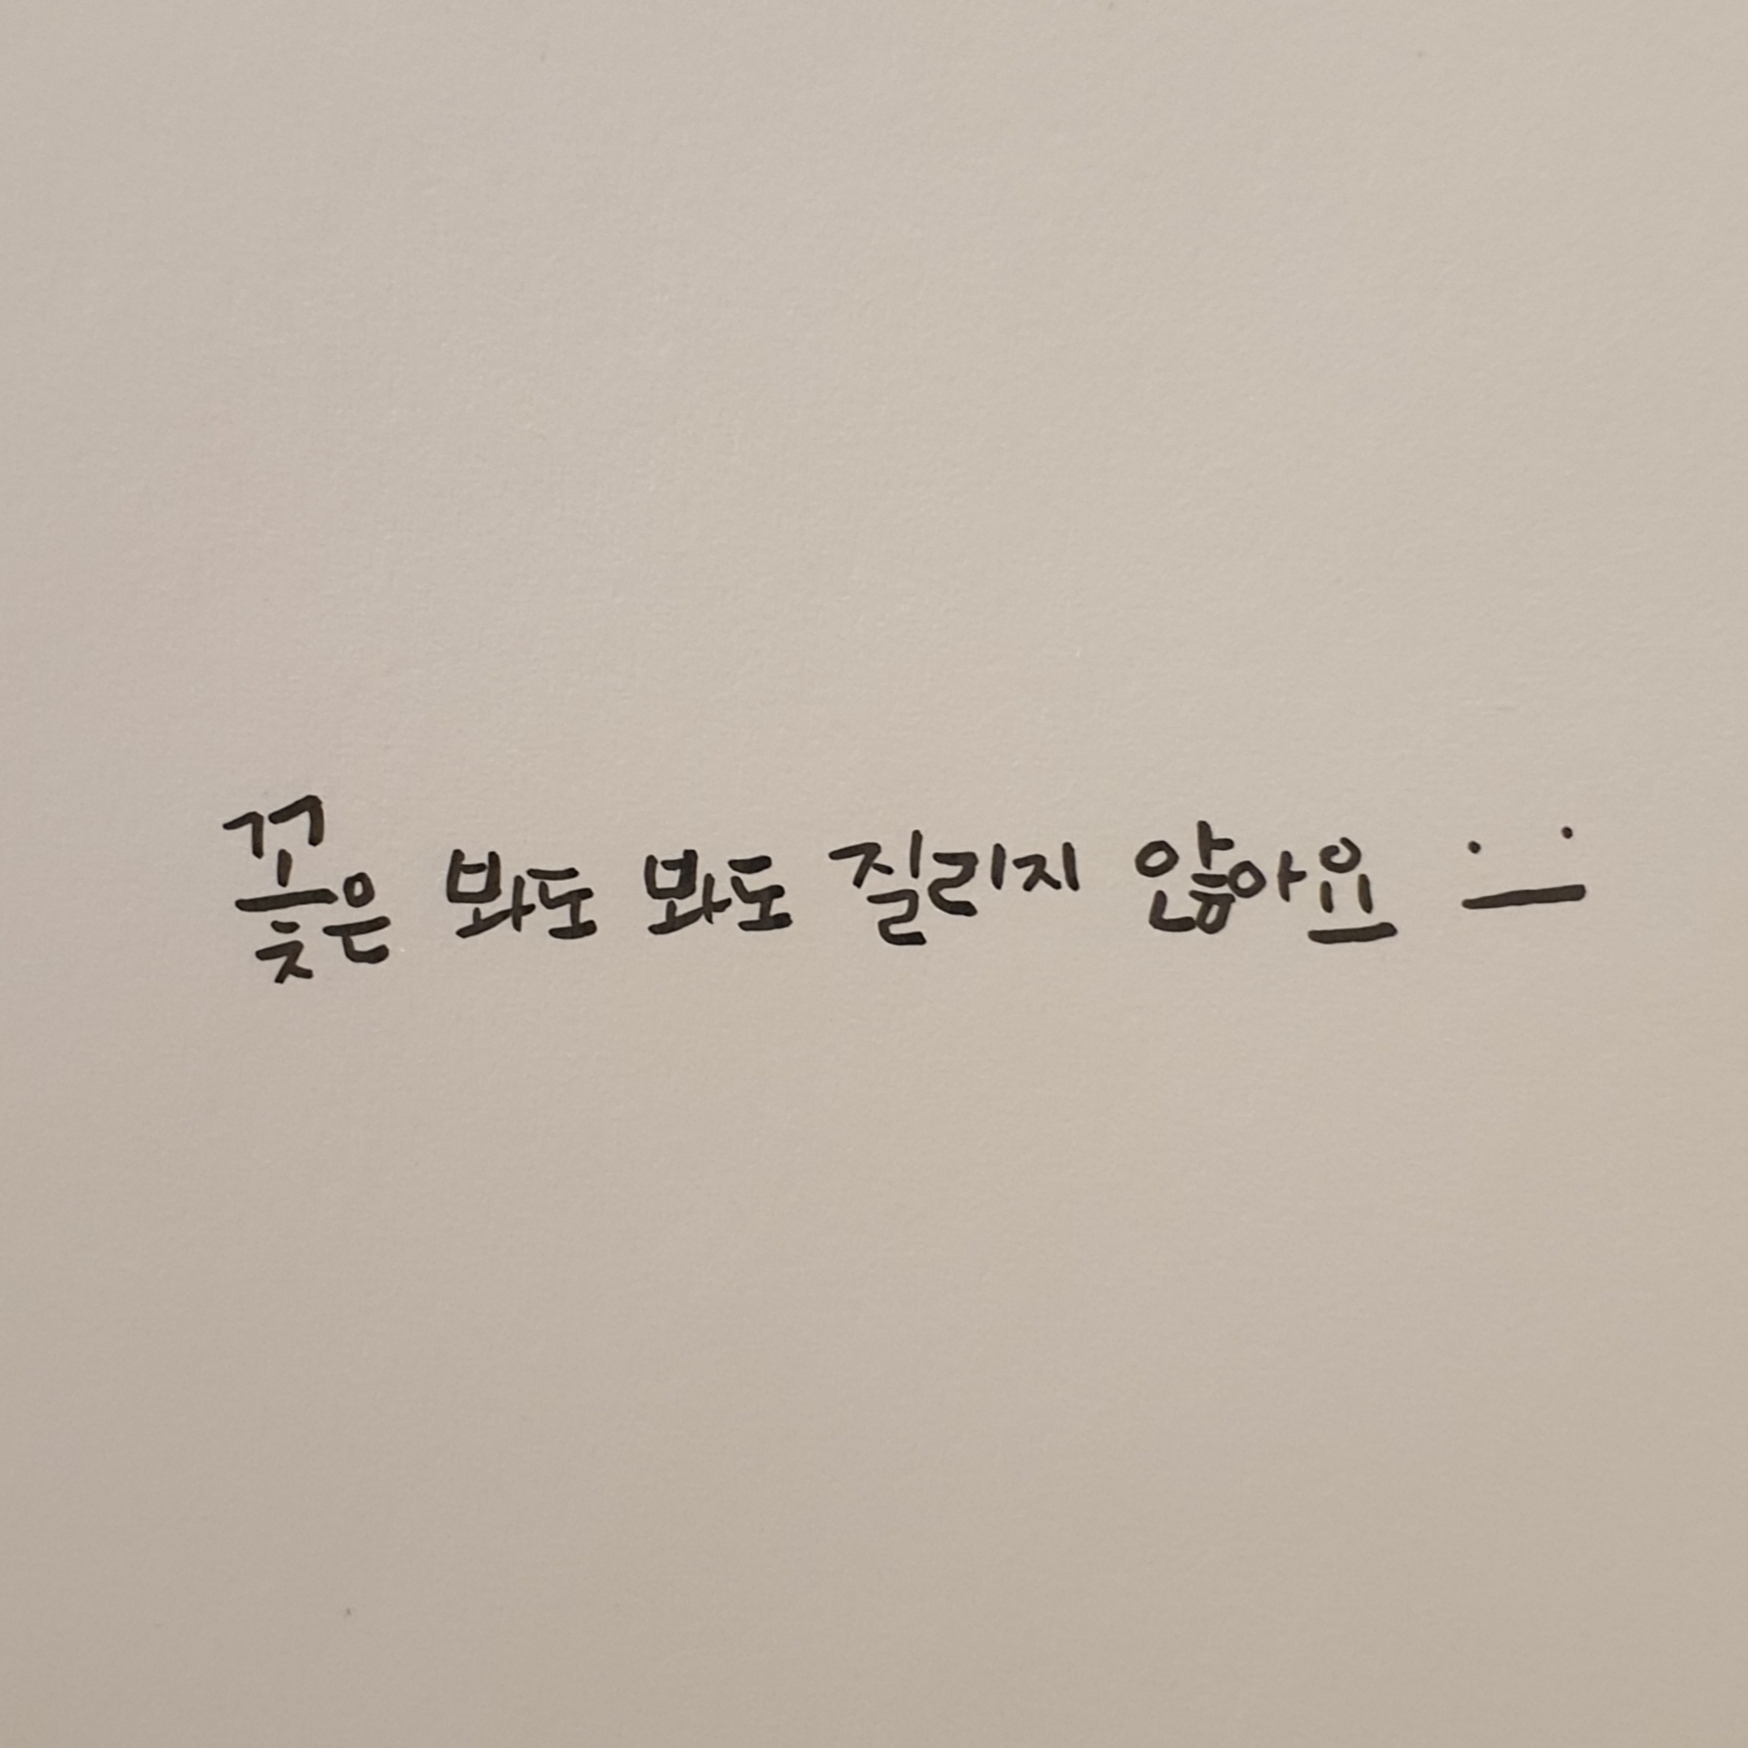 꽃은 봐도 봐도 질리지 않아요